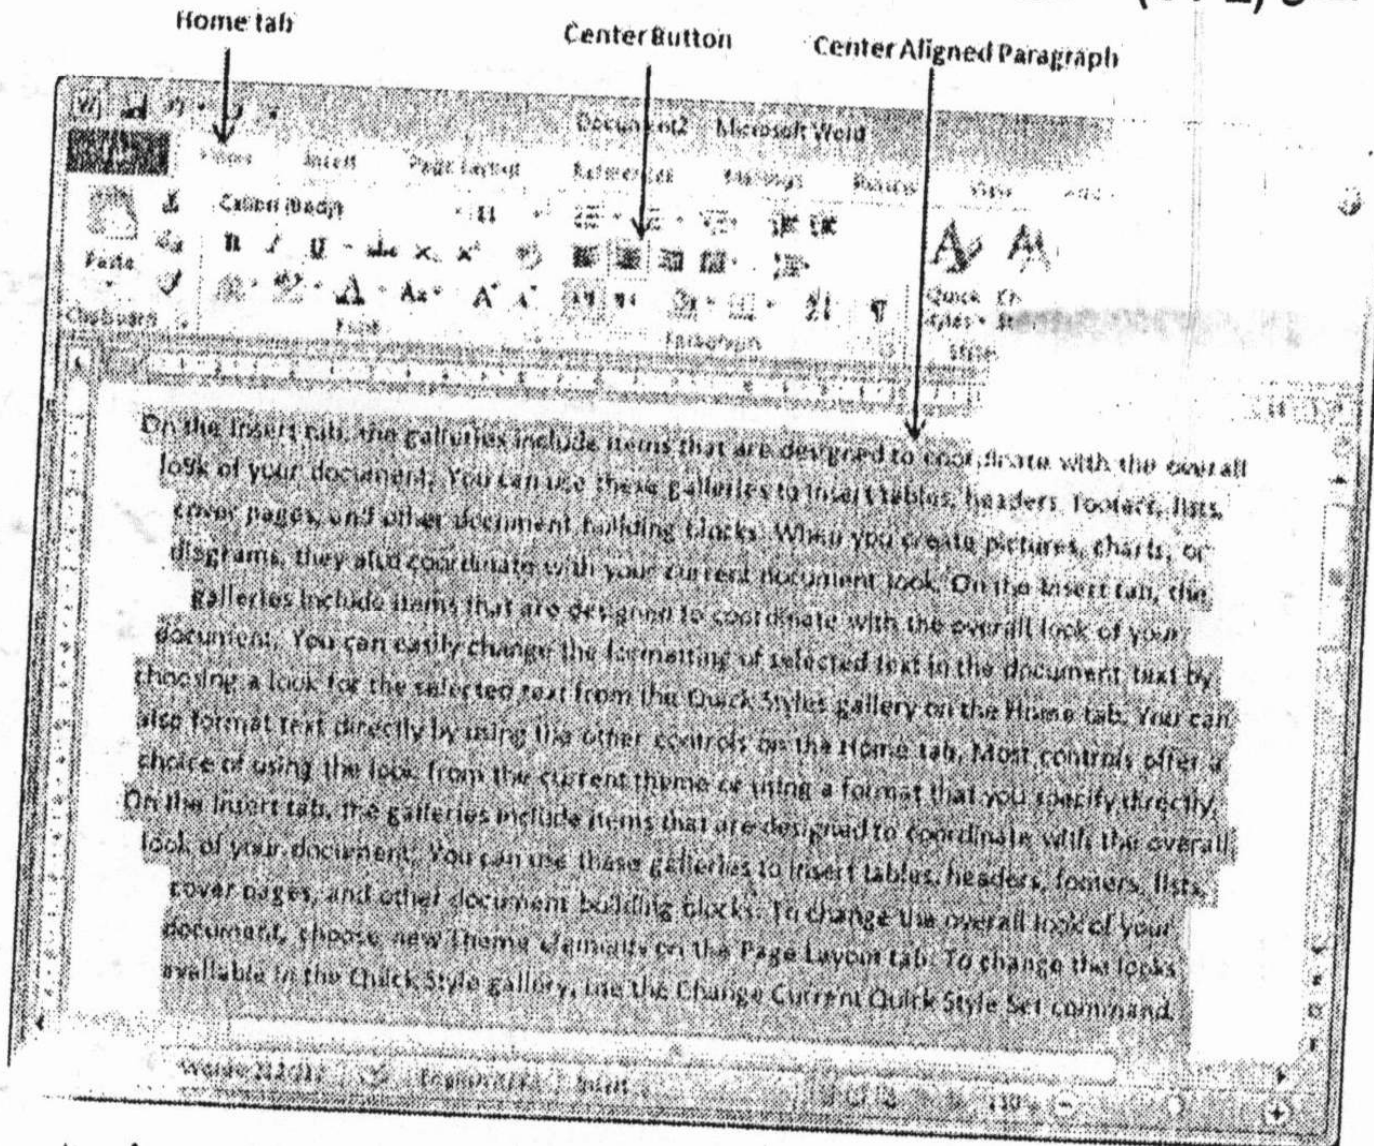 Home tab
Center Button
Center Aligned Paragraph
Document2 Microsoft Word
Insert Page Layout References Mailings Review View
Calibri (Body) 11
Paste
Quick
Clipboard Font Paragraph
On the Insert tab, the galleries include items that are designed to coordinate with the overall
look of your document. You can use these galleries to insert tables, headers, footers, lists,
cover pages, and other document building blocks. When you create pictures, charts, or
diagrams, they also coordinate with your current document look. On the Insert tab, the
galleries include items that are designed to coordinate with the overall look of your
document. You can easily change the formatting of selected text in the document text by
choosing a look for the selected text from the Quick Styles gallery on the Home tab. You can
also format text directly by using the other controls on the Home tab. Most controls offer a
choice of using the look from the current theme or using a format that you specify directly.
On the Insert tab, the galleries include items that are designed to coordinate with the overall
look of your document. You can use these galleries to insert tables, headers, footers, lists,
cover pages, and other document building blocks. To change the overall look of your
document, choose new Theme elements on the Page Layout tab. To change the looks
available in the Quick Style gallery, use the Change Current Quick Style Set command.
Insert 110%